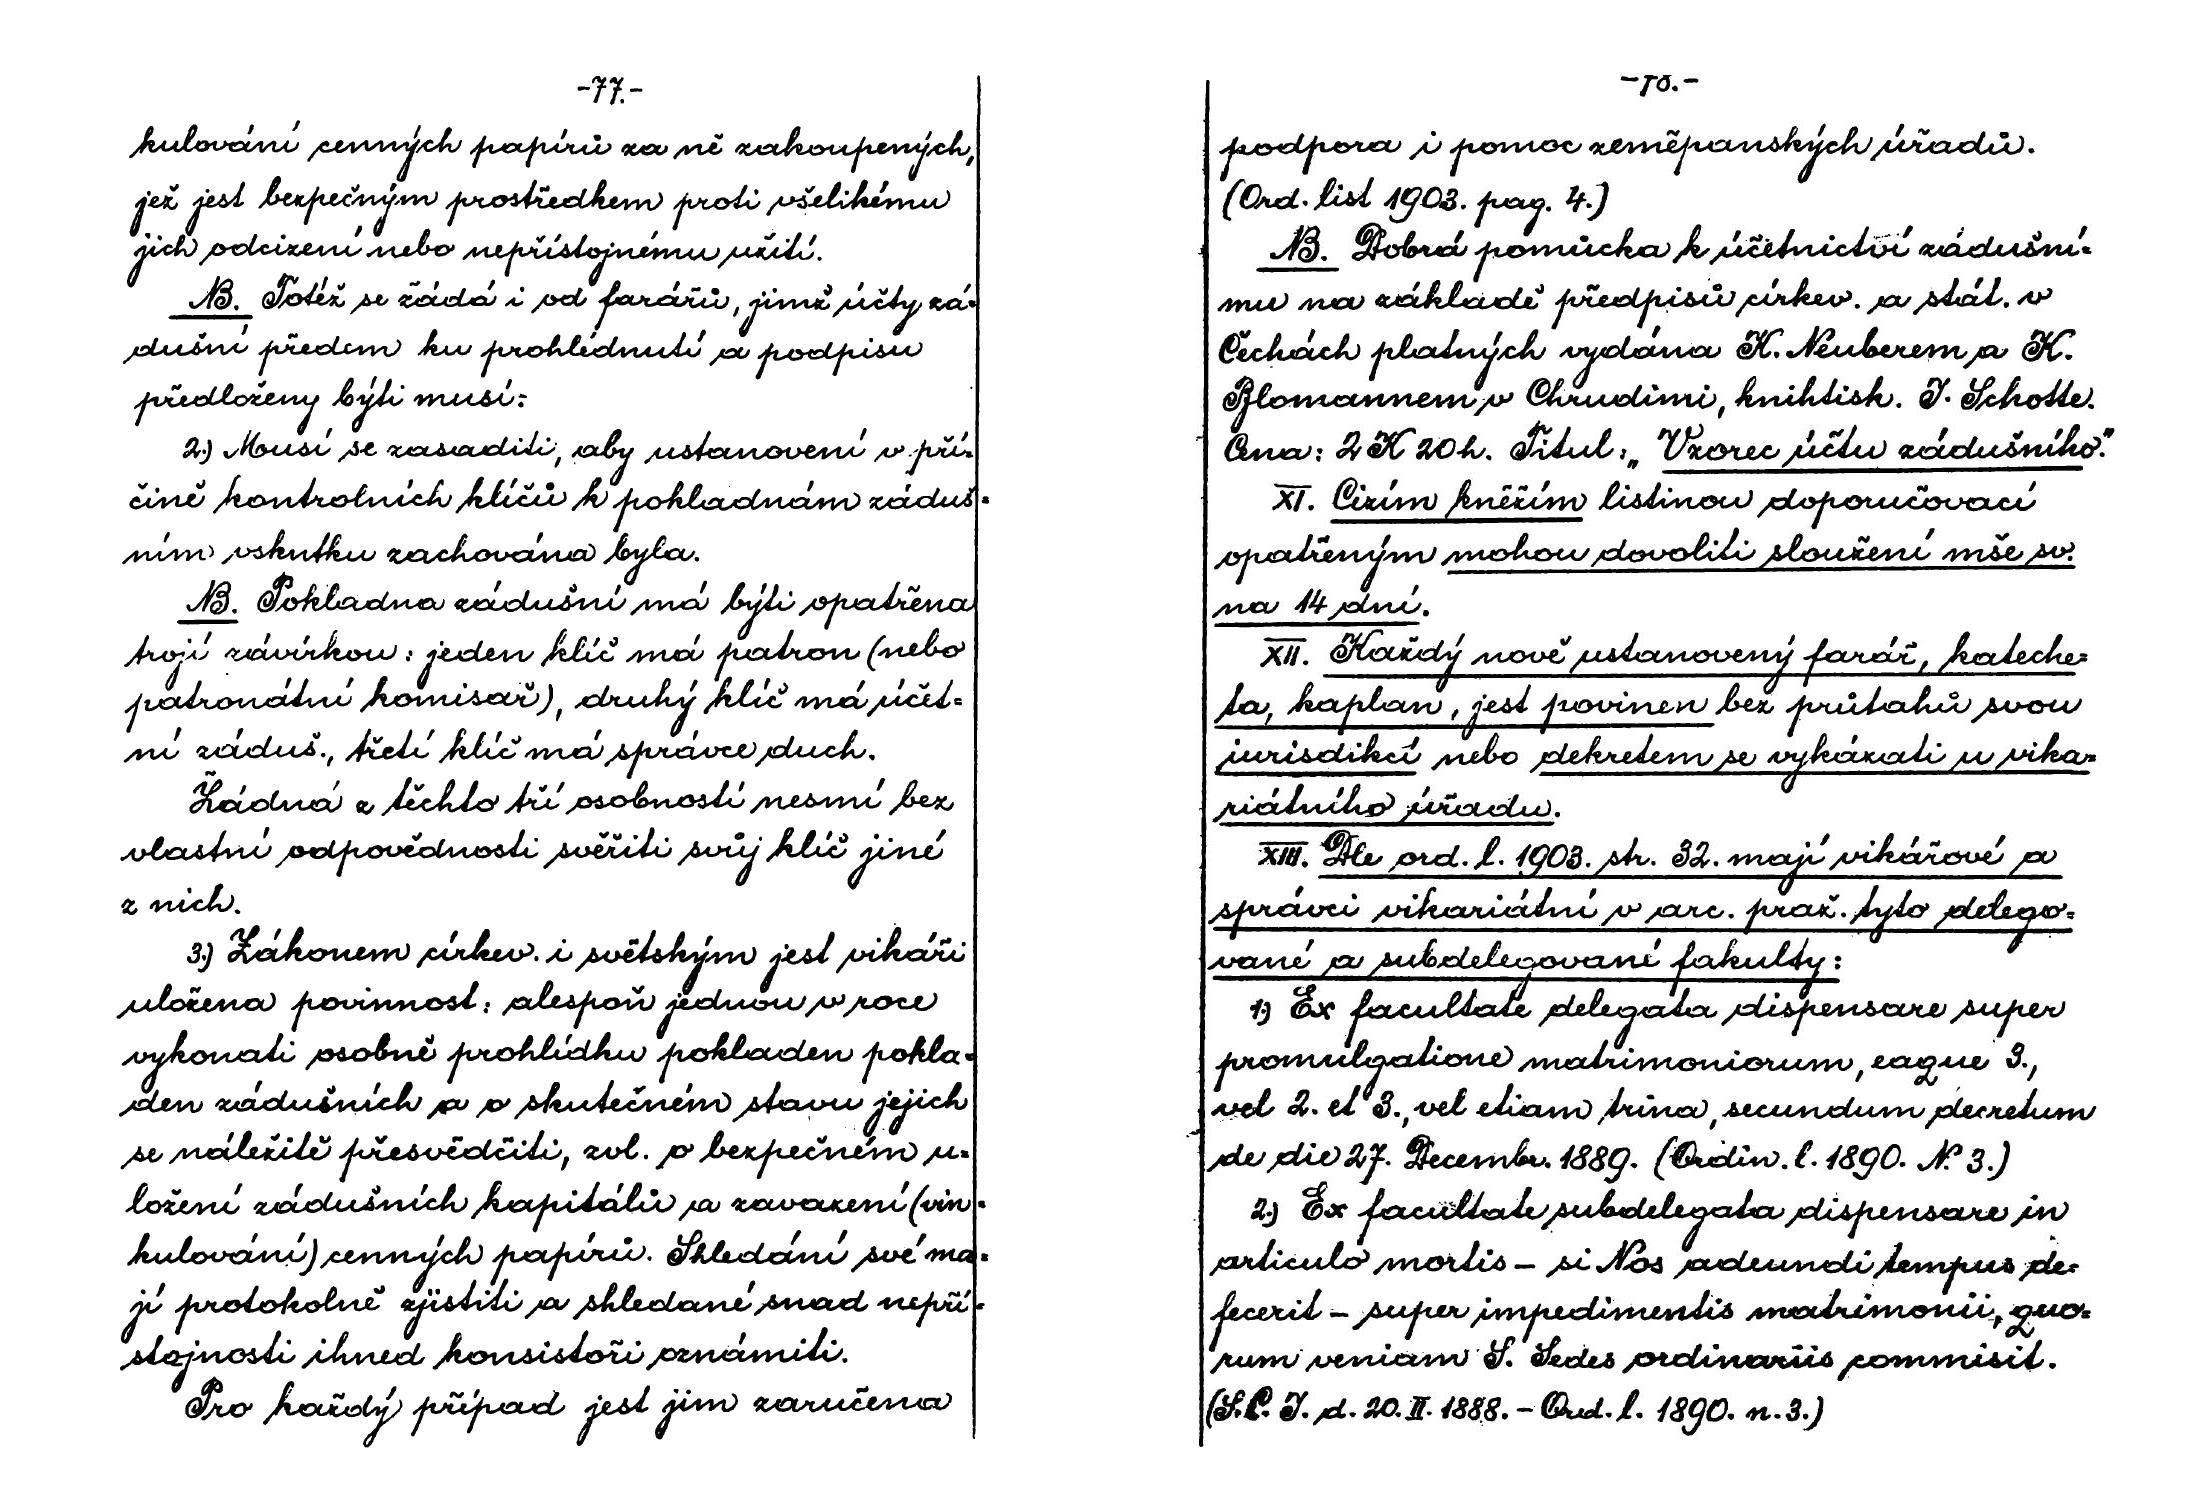 -77.-
kulování cenných papírů za ně zakoupených,
jež jest bezpečným prostředkem proti všelikému
jich odcizení nebo nepřístojnému užití.
NB. Totéž se žádá i od farářů, jimž účty zá-
dušní předem ku prohlédnutí a podpisu
předloženy býti musí:
2.) Musí se zasaditi, aby ustanovení v pří-
čině kontrolních klíčů k pokladnám záduš-
ním vskutku zachována byla.
NB. Pokladna zádušní má býti opatřena
trojí závírkou: jeden klíč má patron (nebo
patronátní komisař), druhý klíč má účet-
ní záduš., třetí klíč má správce duch.
Žádná z těchto tří osobností nesmí bez
vlastní odpovědnosti svěřiti svůj klíč jiné
z nich.
3.) Zákonem církev. i světským jest vikáři
uložena povinnost: alespoň jednou v roce
vykonati osobně prohlídku pokladen pokla-
den zádušních a o skutečném stavu jejich
se náležitě přesvědčiti, zvl. o bezpečném u-
ložení zádušních kapitálů a zavazení (vin-
kulování) cenných papírů. Shledání své ma-
jí protokolně zjistiti a shledané snad nepří-
stojnosti ihned konsistoři oznámiti.
Pro každý případ jest jim zaručena
podpora i pomoc zeměpanských úřadů.
(Ord. list 1903. pag. 4.)
NB. Dobrá pomůcka k účetnictví zádušní-
mu na základě předpisů církev. a stát. v
Čechách platných vydána K. Neuberem a K.
Blomannem v Chrudimi, knihtisk. J. Schotte.
Cena: 2 K 20 h. Titul: „Vzorec účtu zádušního."
XI. Cizím kněžím listinou doporučovací
opatřeným mohou dovoliti sloužení mše sv.
na 14 dní.
XII. Každý nově ustanovený farář, kateche-
ta, kaplan, jest povinen bez průtahů svou
jurisdikcí nebo dekretem se vykázati u vika-
riátního úřadu.
XIII. Dle ord. l. 1903. str. 32. mají vikářové a
správci vikariátní v arc. praž. tyto delego-
vané a subdelegované fakulty:
1.) Ex facultate delegata dispensare super
promulgatione matrimoniorum, eaque 3.,
vel 2. et 3., vel etiam trina, secundum decretum
de die 27. Decembr. 1889. (Ordin. l. 1890. N. 3.)
2.) Ex facultate subdelegata dispensare in
articulo mortis – si Nos adeundi tempus de-
fecerit – super impedimentis matrimonii, quo-
rum veniam S. Sedes ordinariis commisit.
(S. C. J. d. 20. II. 1888. – Ord. l. 1890. n. 3.)